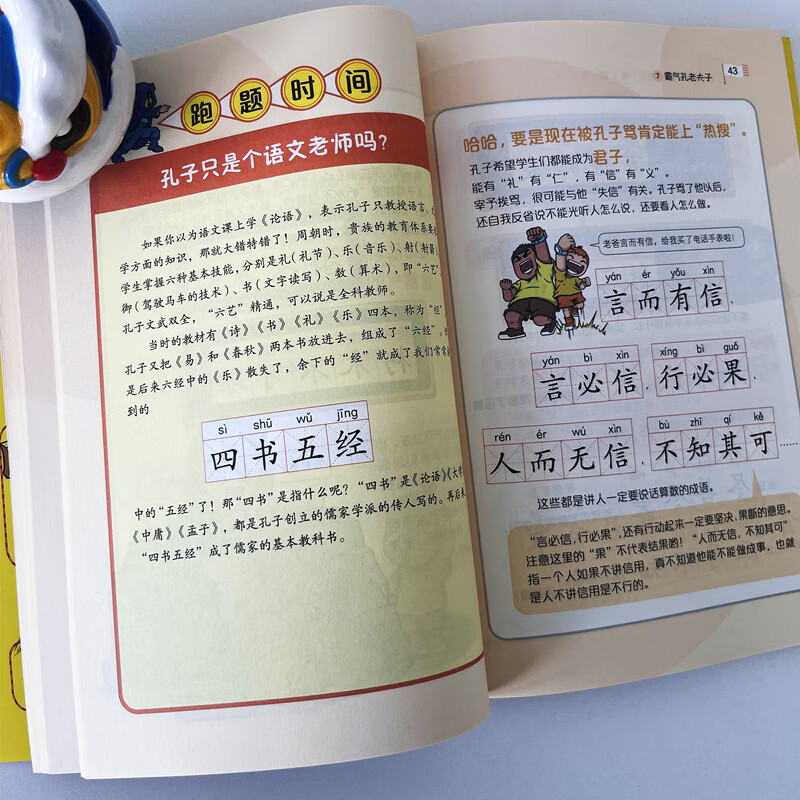 跑题时间
孔子只是个语文老师吗？
如果你以为语文课上学《论语》，表示孔子只教授语言、
学方面的知识，那就大错特错了！周朝时，贵族的教育体系要求
学生掌握六种基本技能，分别是礼（礼节）、乐（音乐）、射（射箭）、
御（驾驶马车的技术）、书（文字读写）、数（算术），即“六艺”
孔子文武双全，“六艺”精通，可以说是全科教师。
当时的教材有《诗》《书》《礼》《乐》四本，称为“经”
孔子又把《易》和《春秋》两本书放进去，组成了“六经”。
是后来六经中的《乐》散失了，余下的“经”就成了我们常常
到的
sì shū wǔ jīng
四书五经
中的“五经”了！那“四书”是指什么呢？“四书”是《论语》《大学
《中庸》《孟子》，都是孔子创立的儒家学派的传人写的。再后来
“四书五经”成了儒家的基本教科书。
7 霸气孔老夫子 43
哈哈，要是现在被孔子骂肯定能上“热搜”。
孔子希望学生们都能成为君子，
能有“礼”有“仁”，有“信”有“义”。
宰予挨骂，很可能与他“失信”有关。孔子骂了他以后，
还自我反省说不能光听人怎么说，还要看人怎么做。
老爸言而有信，给我买了电话手表啦！
yán ér yǒu xìn
言而有信，
yán bì xìn xíng bì guǒ
言必信，行必果，
rén ér wú xìn bù zhī qí kě
人而无信，不知其可……
这些都是讲人一定要说话算数的成语。
“言必信，行必果”，还有行动起来一定要坚决、果断的意思。
注意这里的“果”不代表结果哟！“人而无信，不知其可”
指一个人如果不讲信用，真不知道他能不能做成事，也就
是人不讲信用是不行的。